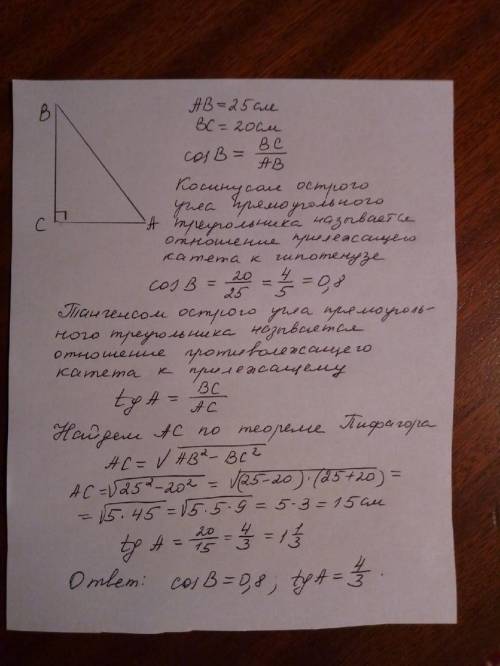 B
C
A
AB = 25 см
BC = 20 см
cos B = BC/AB
Косинусом острого
угла прямоугольного
треугольника называется
отношение прилежащего
катета к гипотенузе
cos B = 20/25 = 4/5 = 0,8
Тангенсом острого угла прямоуголь-
ного треугольника называется
отношение противолежащего
катета к прилежащему
tg A = BC/AC
Найдем AC по теореме Пифагора
AC = √(AB² − BC²)
AC = √(25² − 20²) = √((25−20)·(25+20)) =
= √(5·45) = √(5·5·9) = 5·3 = 15 см
tg A = 20/15 = 4/3 = 1 1/3
Ответ: cos B = 0,8; tg A = 4/3.